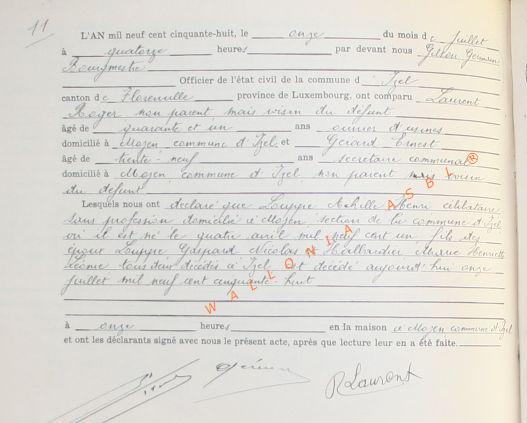 11
L'AN mil neuf cent cinquante-huit, le onze du mois de Juillet
à quatorze heures par devant nous Gillon Germain
Bourgmestre
Officier de l'état civil de la commune d'Izel
canton de Florenville province de Luxembourg, ont comparu Laurent
Roger non parent, mais voisin du défunt
âgé de quarante et un ans ouvrier d'usines
domicilié à Moyen commune d'Izel et Gérard Ernest
âgé de trente-neuf ans secrétaire communal
domicilié à Moyen, commune d'Izel, non parent voisin
du défunt
Lesquels nous ont déclaré que Louppe Achille Henri célibataire
sans profession domicilié à Moyen section de la commune d'Izel
où il est né le quatre avril mil neuf cent un, fils des
époux Louppe Gaspard Nicolas Marie Henriette
tous deux décédés à Izel est décédé aujourd'hui onze
juillet mil neuf cent cinquante huit
à onze heures en la maison à Moyen commune d'Izel
et ont les déclarants signé avec nous le présent acte, après que lecture leur en a été faite.
R Laurent
WALLONIA ASBL ®